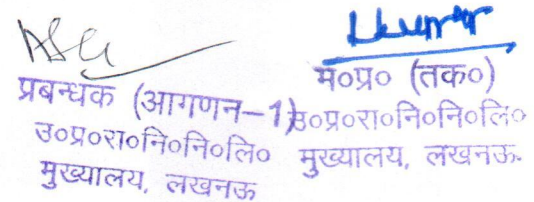 प्रबन्धक (आगणन-1)
उ०प्र०रा०नि०नि०लि०
मुख्यालय, लखनऊ
म०प्र० (तक०)
उ०प्र०रा०नि०नि०लि०
मुख्यालय, लखनऊ.